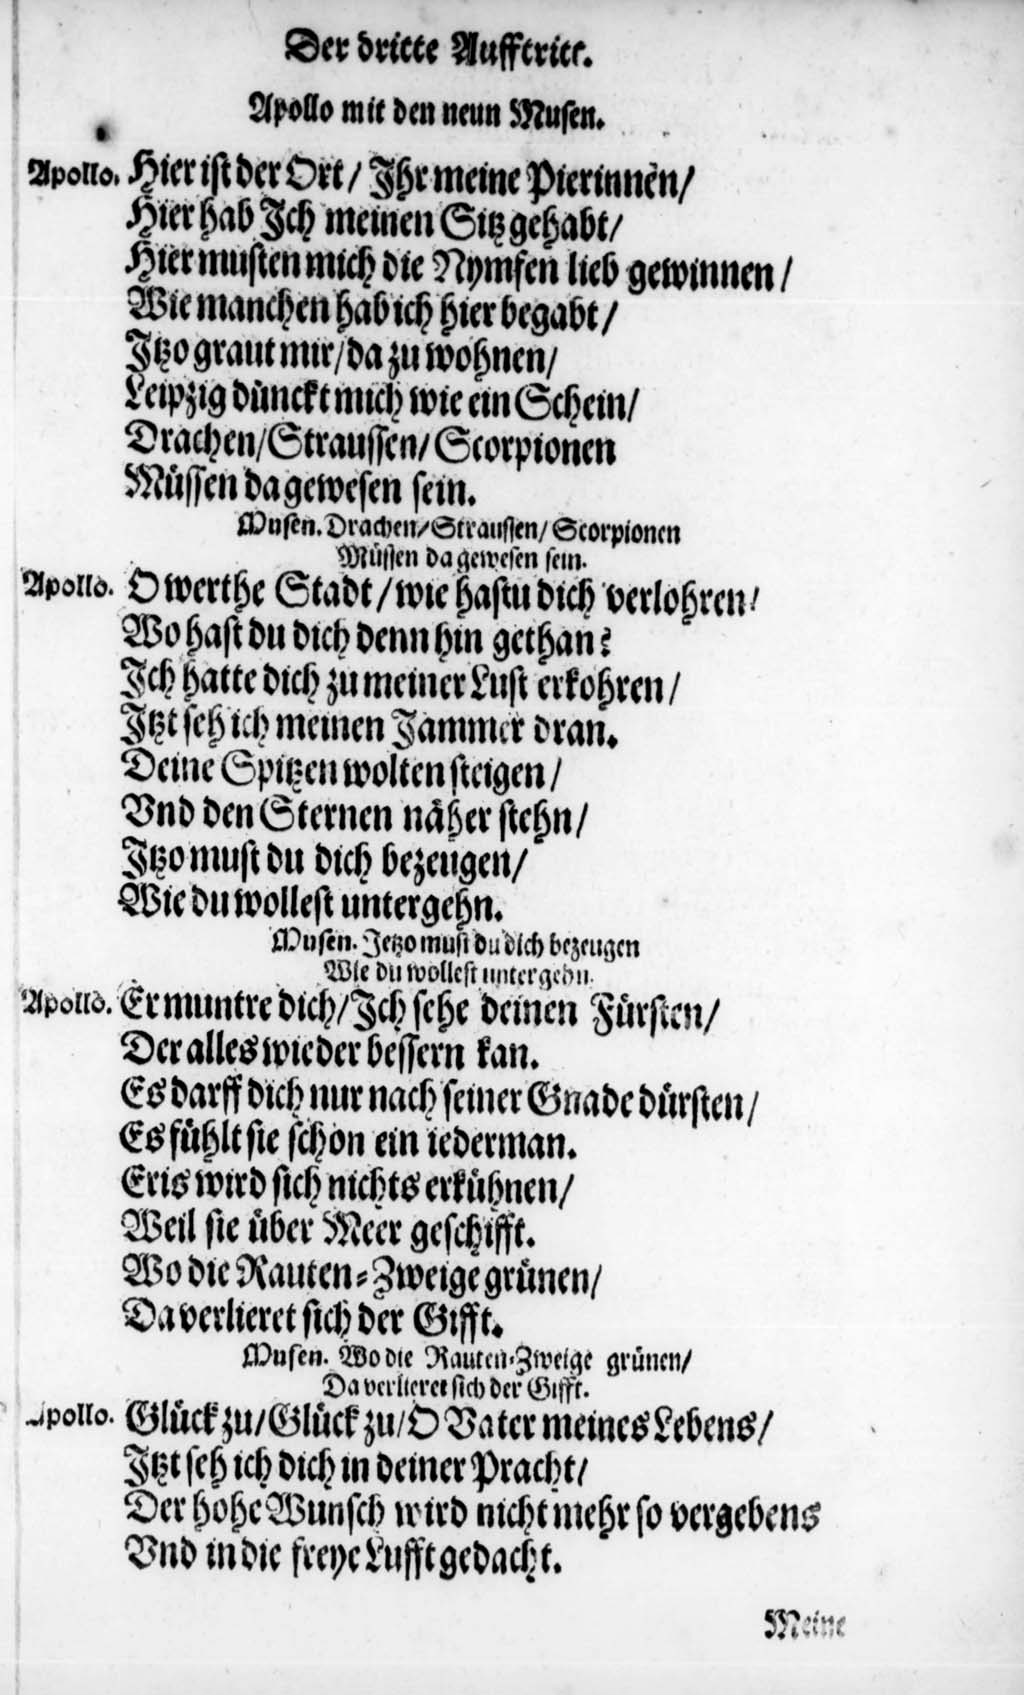 Der dritte Aufftritt.
Apollo mit den neun Musen.
Apollo. Hier ist der Ort/ Ihr meine Pierinnen/
Hier hab Ich meinen Sitz gehabt/
Hier musten mich die Nymfen lieb gewinnen/
Wie manchen hab ich hier begabt/
Itzo graut mir/ da zu wohnen/
Leipzig dünckt mich wie ein Schein/
Drachen/ Straussen/ Scorpionen
Müssen da gewesen sein.
Musen. Drachen/ Straussen/ Scorpionen
Müssen da gewesen sein.
Apollo. O werthe Stadt/ wie hastu dich verlohren/
Wo hast du dich denn hin gethan?
Ich hatte dich zu meiner Lust erkohren/
Itzt seh ich meinen Jammer dran.
Deine Spitzen wolten steigen/
Vnd den Sternen näher stehn/
Itzo must du dich bezeugen/
Wie du wollest untergehn.
Musen. Jetzo must du dich bezeugen
Wie du wollest untergehn.
Apollo. Ermuntre dich/ Ich sehe deinen Fürsten/
Der alles wieder bessern kan.
Es darff dich nur nach seiner Gnade dürsten/
Es fühlt sie schon ein iederman.
Eris wird sich nichts erkühnen/
Weil sie über Meer geschifft.
Wo die Rauten-Zweige grünen/
Da verlieret sich der Gifft.
Musen. Wo die Rauten-Zweige grünen/
Da verlieret sich der Gifft.
Apollo. Glück zu/ Glück zu/ O Vater meines Lebens/
Itzt seh ich dich in deiner Pracht/
Der hohe Wunsch wird nicht mehr so vergebens
Vnd in die freye Lufft gedacht.
Meine